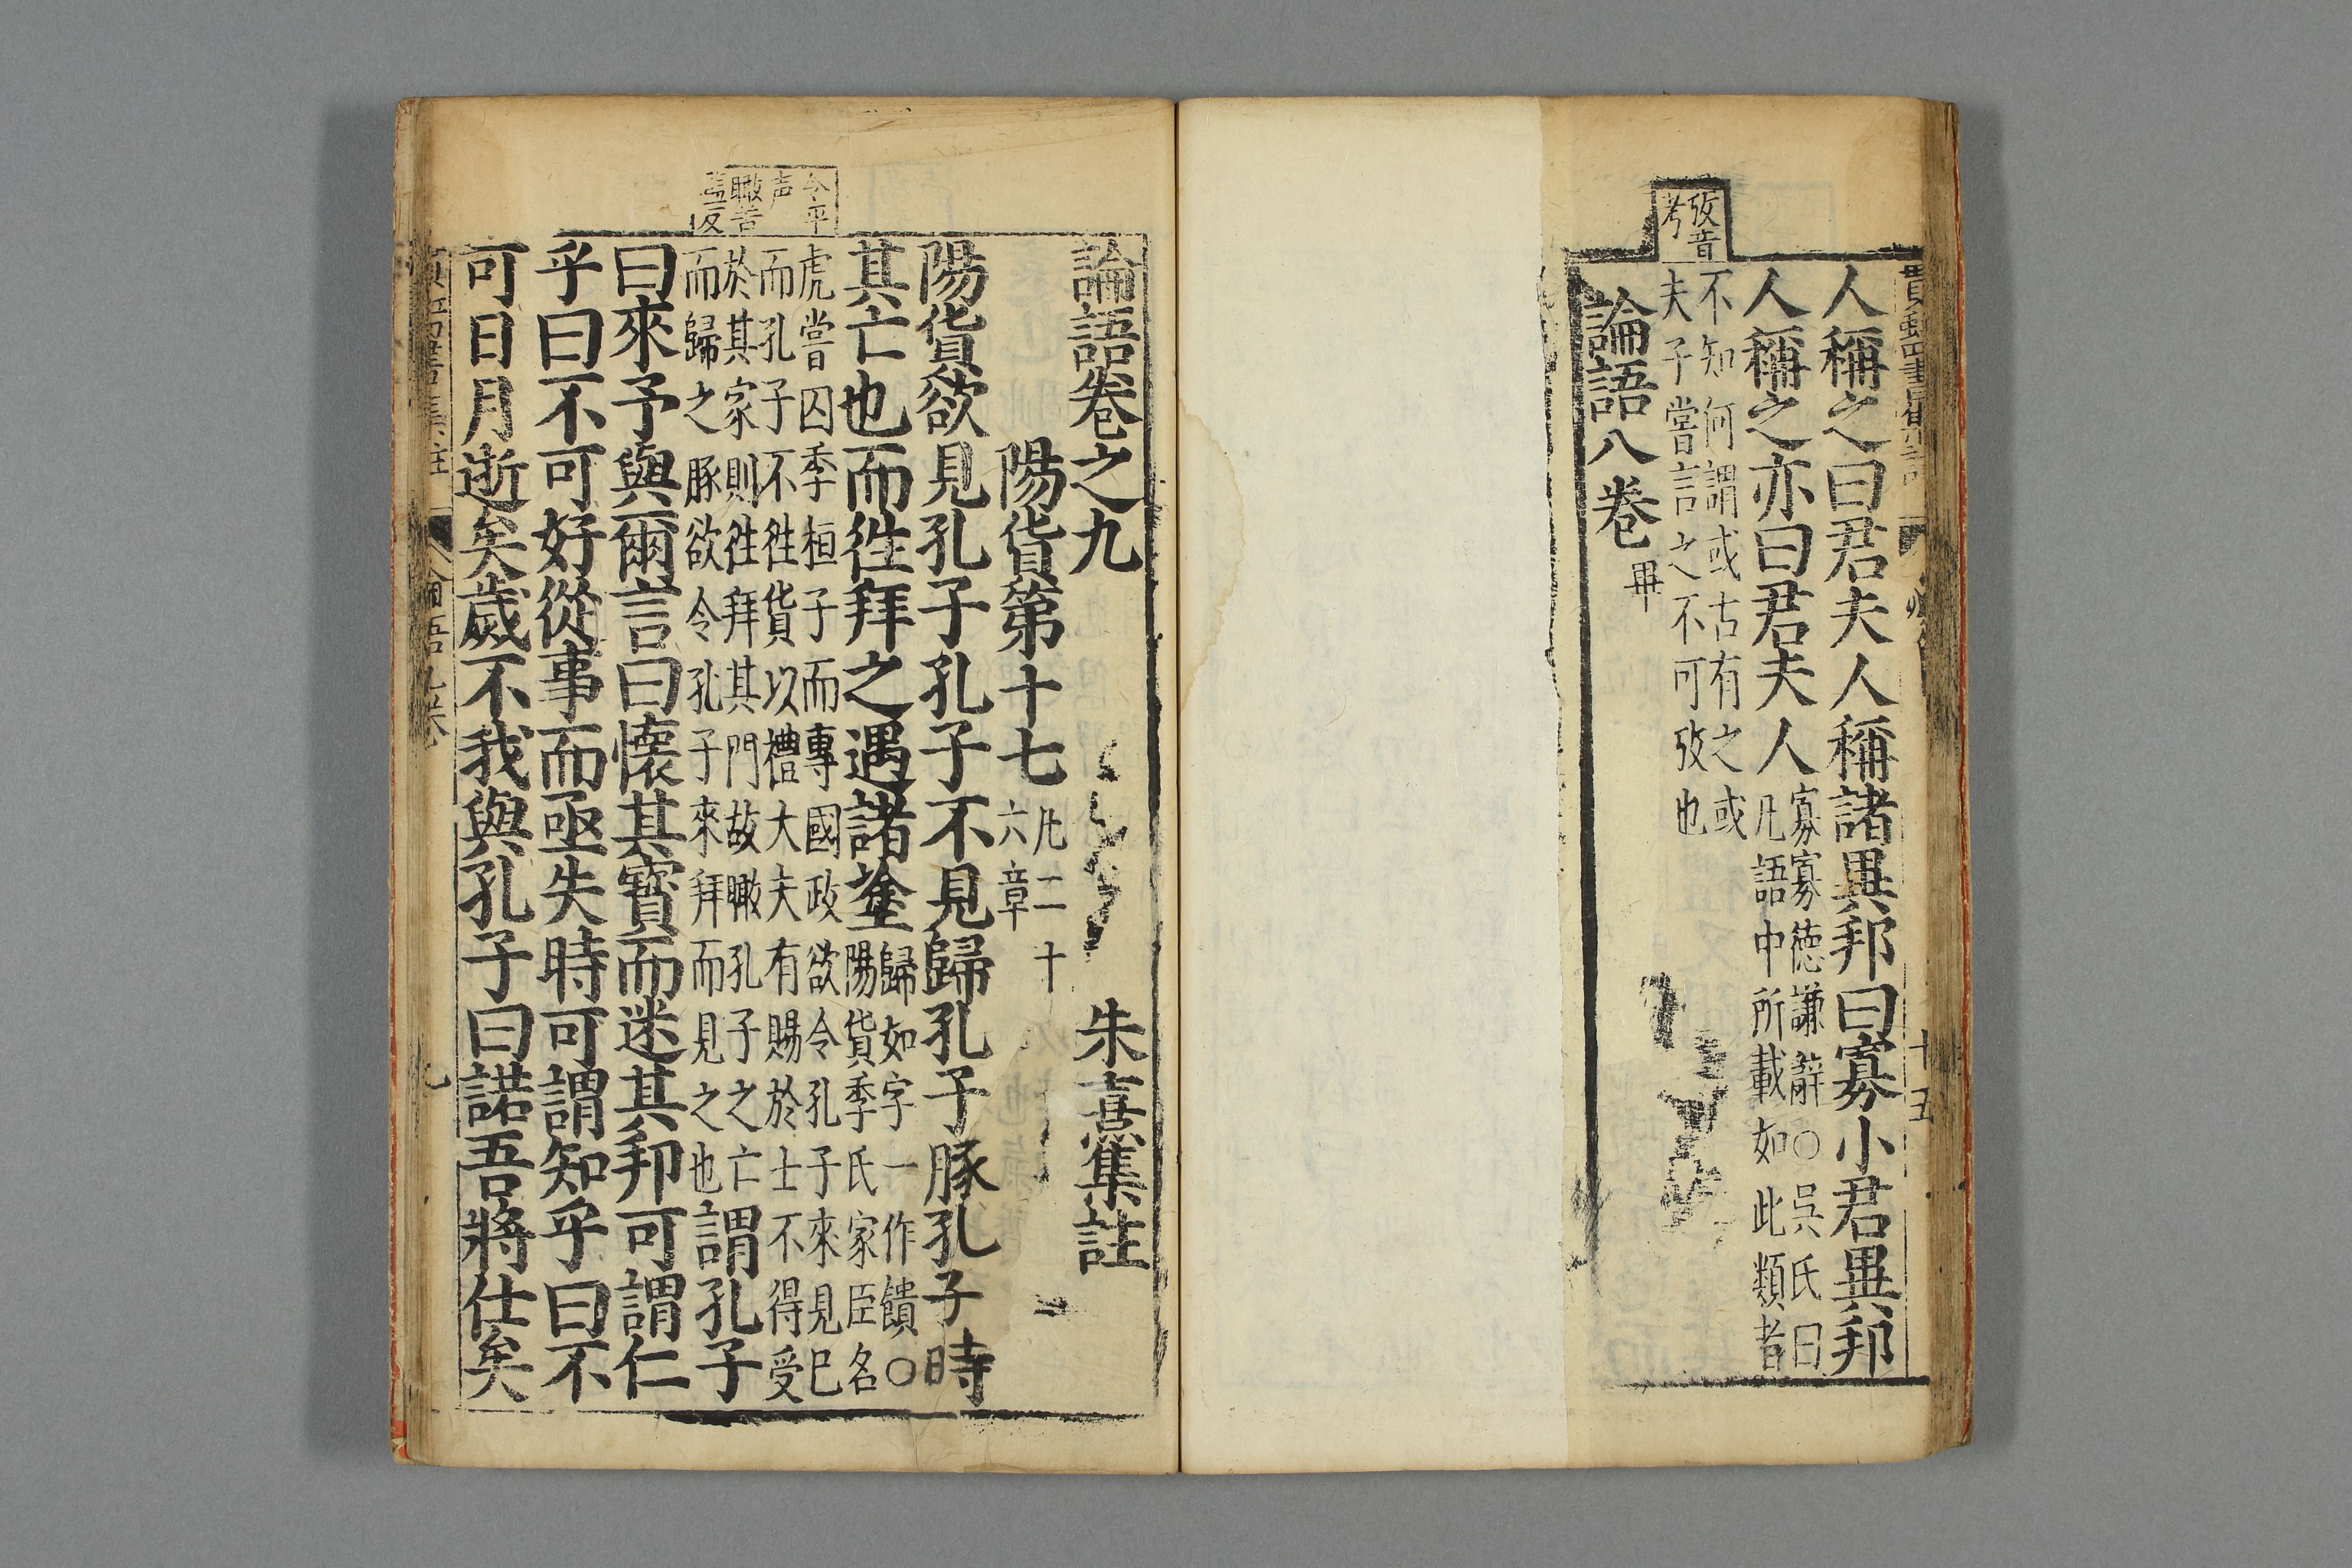 攷音
考
十五
人稱之曰君夫人稱諸異邦曰寡小君異邦
人稱之亦曰君夫人
寡寡德謙辭○吳氏曰
凡語中所載如此類者
不知何謂或古有之或
夫子嘗言之不可攷也
論語八卷畢
論語卷之九 朱熹集註
陽貨第十七
凡二十
六章
陽貨欲見孔子孔子不見歸孔子豚孔子時
其亡也而徃拜之遇諸塗
歸如字一作饋○
陽貨季氏家臣名
令平
声
瞰苦
濫反
虎嘗囚季桓子而專國政欲令孔子來見已
而孔子不徃貨以禮大夫有賜於士不得受
於其家則徃拜其門故瞰孔子之亡
而歸之豚欲令孔子來拜而見之也
謂孔子
曰來予與爾言曰懐其寶而迷其邦可謂仁
乎曰不可好從事而亟失時可謂知乎曰不
可日月逝矣歲不我與孔子曰諾吾將仕矣
論語九卷
九